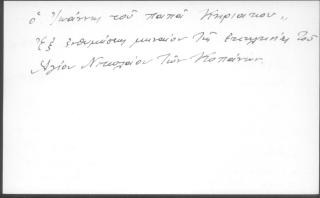 ὁ Ἰωάννης τοῦ παπᾶ Κυριακου,,
Ἐξ ἐνθυμήσεως μηναίου τῆς ἐκκλησίας τοῦ
Ἁγίου Νικολάου τῶν